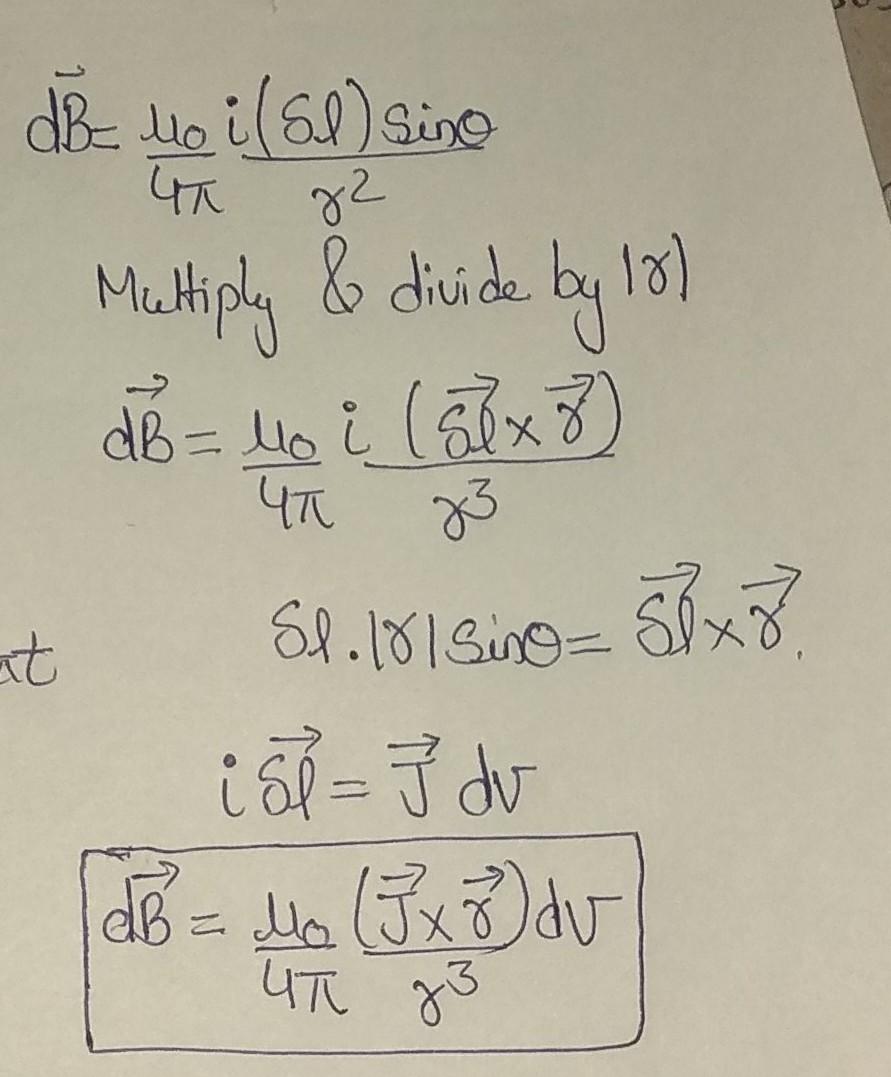 d\vec{B} = \frac{μ₀}{4π} \frac{i(δl) sinθ}{r²}
Multiply & divide by |r|
d\vec{B} = \frac{μ₀}{4π} \frac{i(\vec{δl} × \vec{r})}{r³}
at δl.|r| sinθ = \vec{δl} × \vec{r}.
i \vec{δl} = \vec{J} dv
d\vec{B} = \frac{μ₀}{4π} \frac{(\vec{J} × \vec{r})}{r³} dv